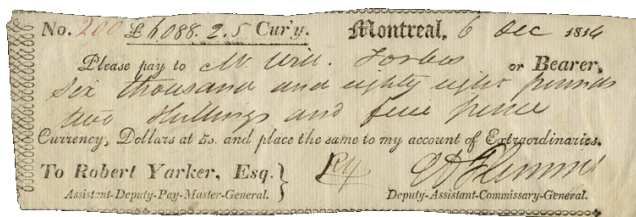 No. 200 £6,088.2.5 Cur'y. Montreal, 6 Dec 1814
Please pay to Mr. Will. Forbes or Bearer,
Six thousand and eighty eight pounds
two Shillings and five pence
Currency, Dollars at 5s. and place the same to my account of Extraordinaries.
To Robert Yarker, Esq.
Assistant-Deputy-Pay-Master-General. Deputy-Assistant-Commissary-General.